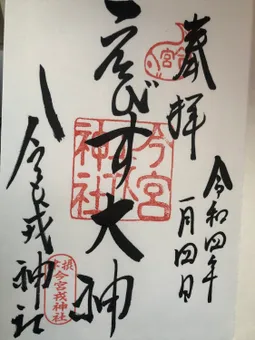 奉拝
令和四年
一月四日
ゑびす大神
今宮戎神社
今宮
神社
摂津
今宮戎神社